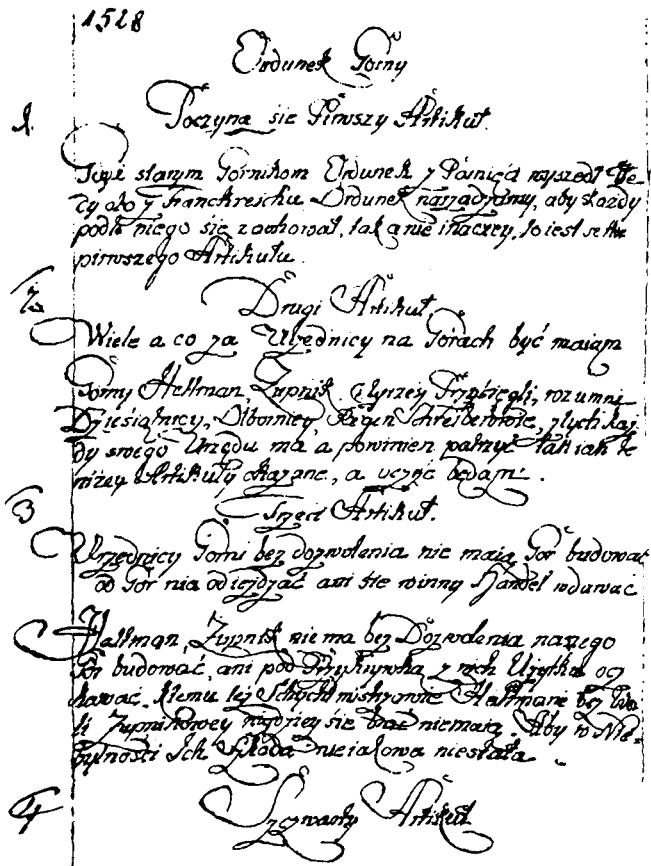 1528
Ordunek Gorny
1.
Poczyna się Pirwszy Artikuł.
starym Gornikom Ordunek y wyszedł
y Franckreichu Ordunek narządzamy, aby każdy
podle niego się zachował, tak a nie inaczey, to iest
pirwszego Artikułu.
2.
Drugi Artikuł.
Wiele a co za Urzędnicy na Górach być maiąm
Gorny Hettman, Zupnik, Czterzey Przysięgli, rozumni
Dziesiątnicy, Olbornicy, z tych kaz
dy swego Urzędu ma a powinien patrzyć tak iak te
niżey Artikuły okazane, a uczyć będąm.
3
Trzeci Artikuł.
Urzędnicy Gorni bez dozwolenia nie maią Gór budować
od Gór nia odieżdżać ani się w inny Handel wdawać
Hattman, Zupnik nie ma bez Dozwolenia naszego
Gór budować, ani pod Przykrywką z nich Użytku ocz
kawać. Ktemu też Schichtmistrzowie Hattmani bez Wo
li Zupnikowey nigdziey się brać niemaią. Aby w Nie-
bytności Ich Szkoda nieiakowa niestała.
4
Szczwarty Artikuł